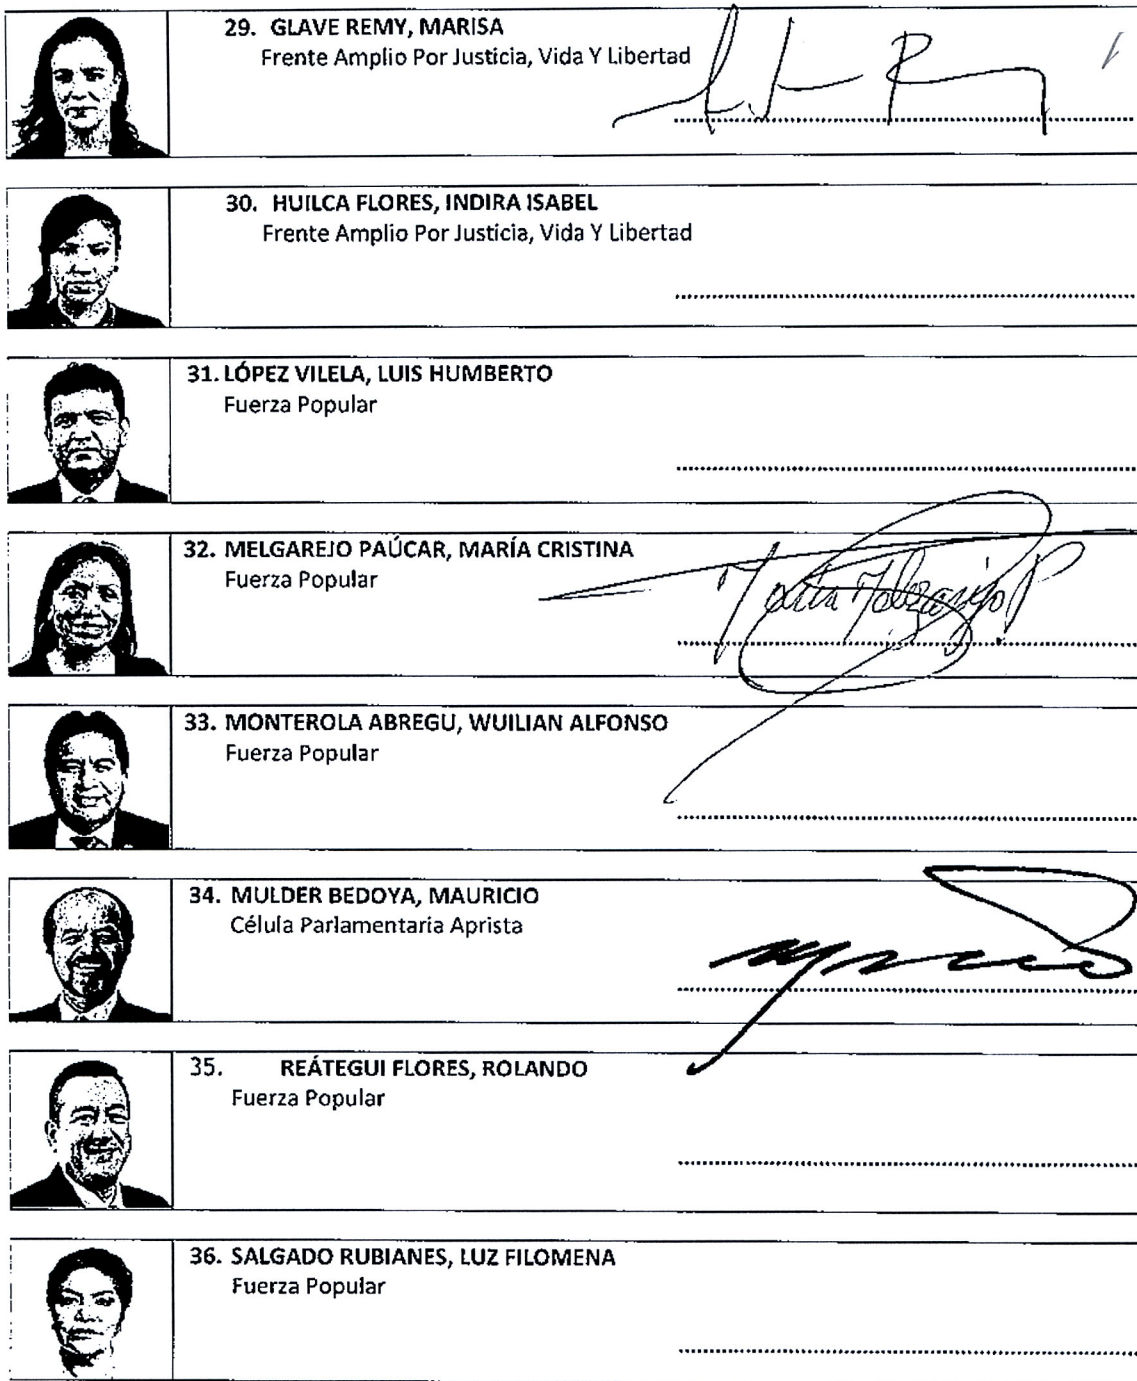 29. GLAVE REMY, MARISA
Frente Amplio Por Justicia, Vida Y Libertad
30. HUILCA FLORES, INDIRA ISABEL
Frente Amplio Por Justicia, Vida Y Libertad
31. LÓPEZ VILELA, LUIS HUMBERTO
Fuerza Popular
32. MELGAREJO PAÚCAR, MARÍA CRISTINA
Fuerza Popular
María Melgarejo P
33. MONTEROLA ABREGU, WUILIAN ALFONSO
Fuerza Popular
34. MULDER BEDOYA, MAURICIO
Célula Parlamentaria Aprista
35. REÁTEGUI FLORES, ROLANDO
Fuerza Popular
36. SALGADO RUBIANES, LUZ FILOMENA
Fuerza Popular